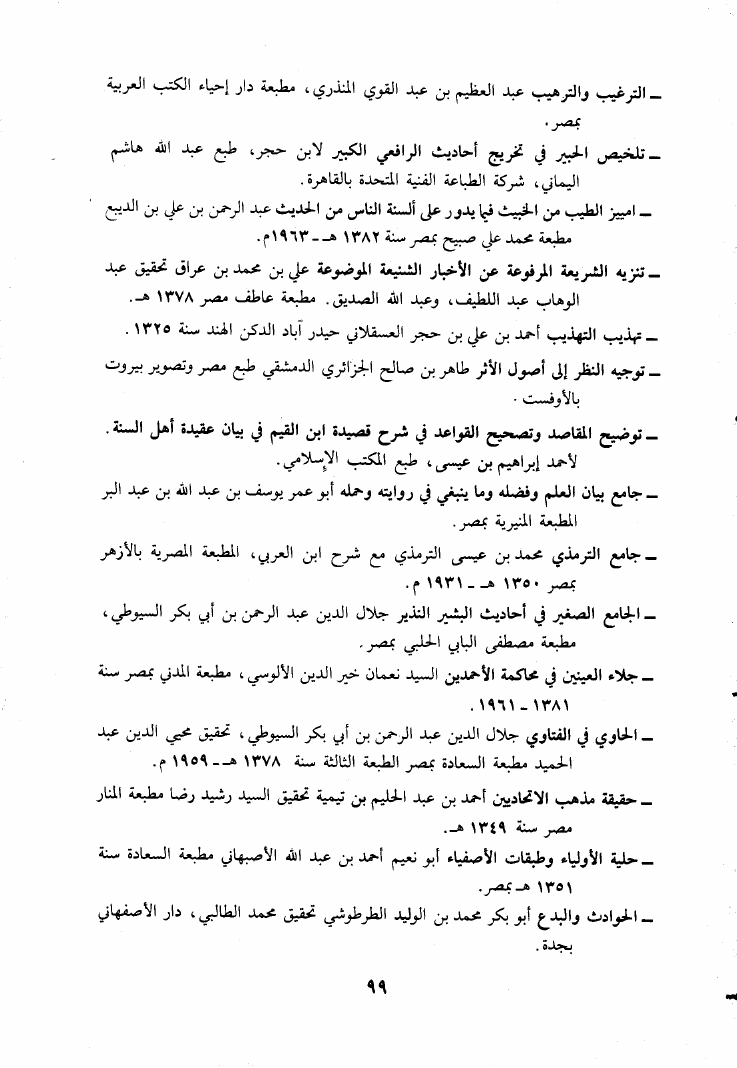 ــ الترغيب والترهيب عبد العظيم بن عبد القوي المنذري، مطبعة دار إحياء الكتب العربية
بمصر.
ــ تلخيص الحبير في تخريج أحاديث الرافعي الكبير لابن حجر، طبع عبد الله هاشم
اليماني، شركة الطباعة الفنية المتحدة بالقاهرة.
ــ امييز الطيب من الخبيث فيما يدور على ألسنة الناس من الحديث عبد الرحمن بن علي بن الديبع
مطبعة محمد علي صبيح بمصر سنة ١٣٨٢ هـ ــ ١٩٦٣م.
ــ تنزيه الشريعة المرفوعة عن الأخبار الشنيعة الموضوعة علي بن محمد بن عراق تحقيق عبد
الوهاب عبد اللطيف، وعبد الله الصديق. مطبعة عاطف مصر ١٣٧٨ هـ.
ــ تهذيب التهذيب أحمد بن علي بن حجر العسقلاني حيدر آباد الدكن الهند سنة ١٣٢٥ .
ــ توجيه النظر إلى أصول الأثر طاهر بن صالح الجزائري الدمشقي طبع مصر وتصوير بيروت
بالأوفست .
ــ توضيح المقاصد وتصحيح القواعد في شرح قصيدة ابن القيم في بيان عقيدة أهل السنة.
لأحمد إبراهيم بن عيسى، طبع المكتب الإسلامي.
ــ جامع بيان العلم وفضله وما ينبغي في روايته وحمله أبو عمر يوسف بن عبد الله بن عبد البر
المطبعة المنيرية بمصر.
ــ جامع الترمذي محمد بن عيسى الترمذي مع شرح ابن العربي، المطبعة المصرية بالأزهر
بمصر ١٣٥٠ هـ ــ ١٩٣١ م.
ــ الجامع الصغير في أحاديث البشير النذير جلال الدين عبد الرحمن بن أبي بكر السيوطي،
مطبعة مصطفى البابي الحلبي بمصر.
ــ جلاء العينين في محاكمة الأحمدين السيد نعمان خير الدين الألوسي، مطبعة المدني بمصر سنة
١٣٨١ ــ ١٩٦١ .
ــ الحاوي في الفتاوي جلال الدين عبد الرحمن بن أبي بكر السيوطي، تحقيق محيي الدين عبد
الحميد مطبعة السعادة بمصر الطبعة الثالثة سنة ١٣٧٨ هـ ــ ١٩٥٩ م.
ــ حقيقة مذهب الاتحاديين أحمد بن عبد الحليم بن تيمية تحقيق السيد رشيد رضا مطبعة المنار
مصر سنة ١٣٤٩ هـ.
ــ حلية الأولياء وطبقات الأصفياء أبو نعيم أحمد بن عبد الله الأصبهاني مطبعة السعادة سنة
١٣٥١ هـ بمصر.
ــ الحوادث والبدع أبو بكر محمد بن الوليد الطرطوشي تحقيق محمد الطالبي، دار الأصفهاني
بجدة.
٩٩